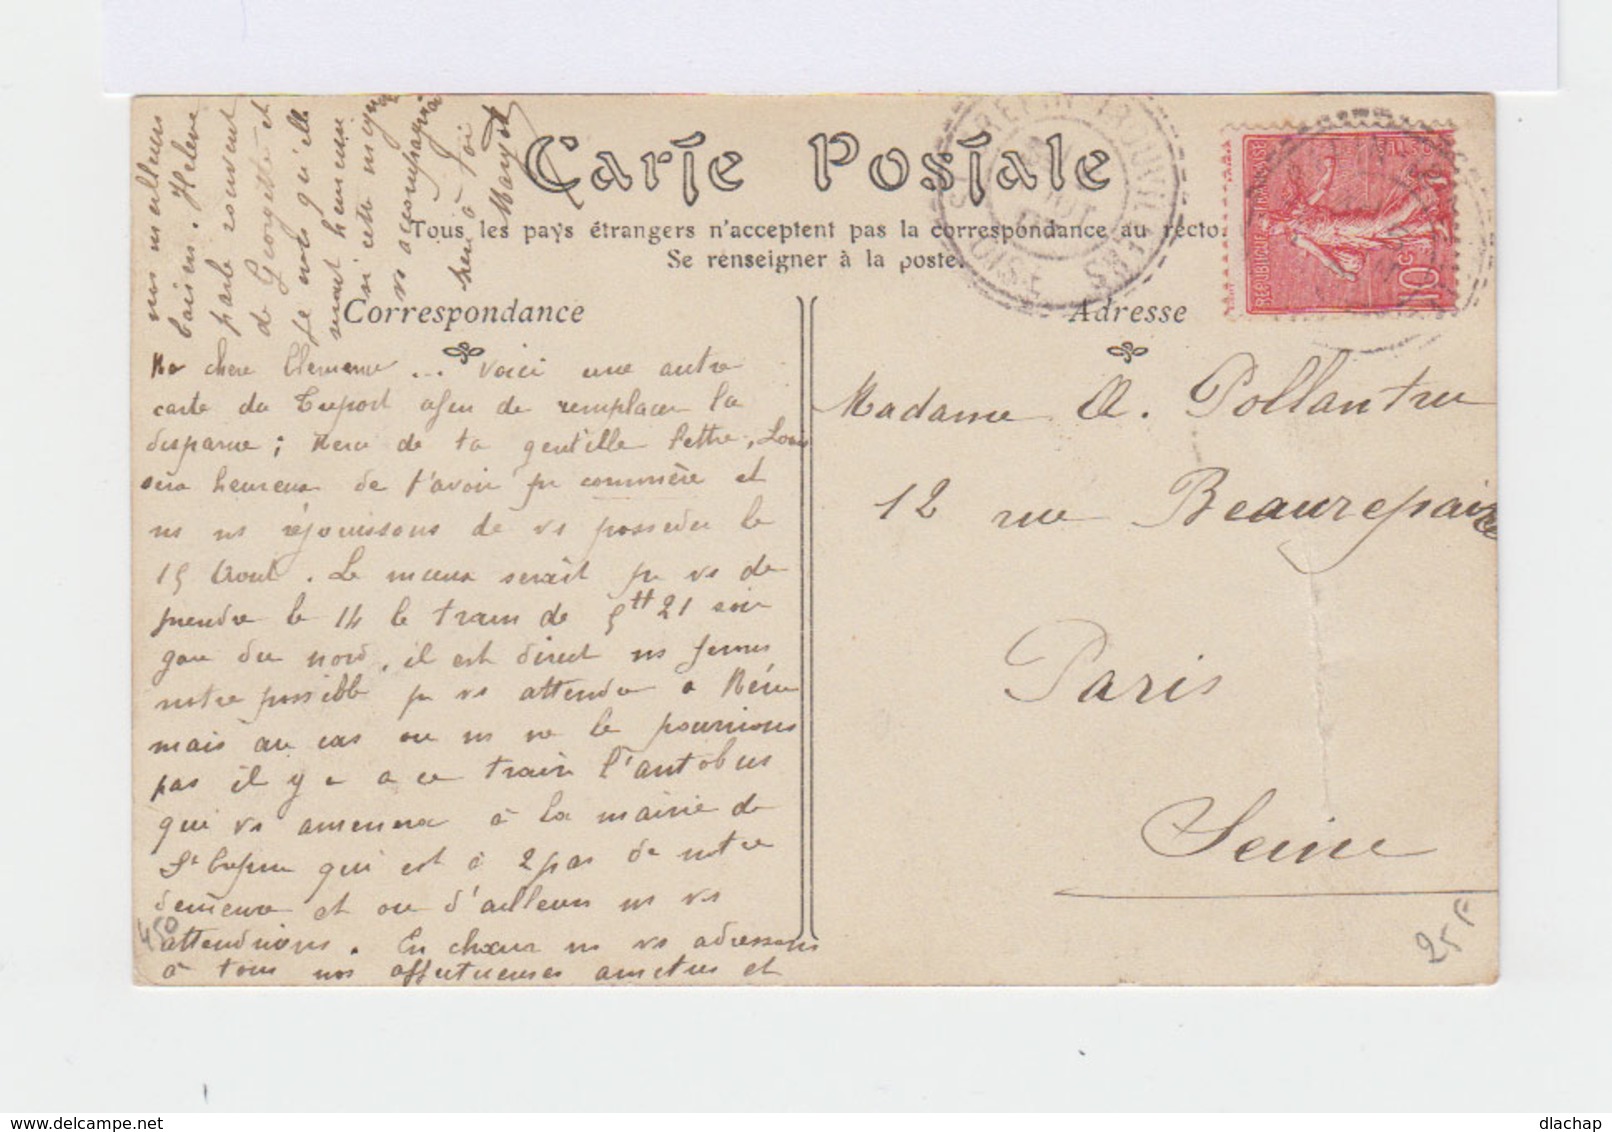 Carte Postale
Tous les pays étrangers n'acceptent pas la correspondance au recto.
Se renseigner à la poste.
Correspondance
Adresse
Ma chère Clémence ... voici une autre
carte du Tréport afin de remplacer la
disparue ; Merci de ta gentille lettre, Louis
sera heureux de t'avoir pr commère et
ns ns réjouissons de vs posséder le
15 Août. Le mieux serait pr vs de
prendre le 14 le train de 5h 21 soir
gare du nord, il est direct ns ferons
notre possible pr vs attendre à Méru
mais au cas ou ns ne le pourrions
pas il y a a ce train l'autobus
qui vs amenera à la mairie de
St Crépin qui est à 2 pas de notre
demeure et ou d'ailleurs ns vs
attendrions. En chœur ns vs adressons
à tous nos affectueuses amitiés et
nos meilleurs
baisers. Hélène
parle souvent
de Georgette et
je crois qu'elle
serait heureuse
si cette mignonne
vs accompagnait
Merci à toi
Margot
Madame A. Pollantru
12 rue Beaurepaire
Paris
Seine
REPUBLIQUE FRANÇAISE
POSTES
10c
450
25F
www.delcampe.net
dlachap